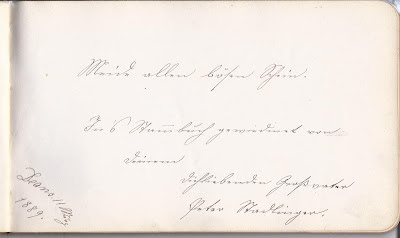 Meide allen bösen Schein.
In's Stammbuch gewidmet von
Deinem
dichliebenden Großvater
Peter Stadlinger.
1889.